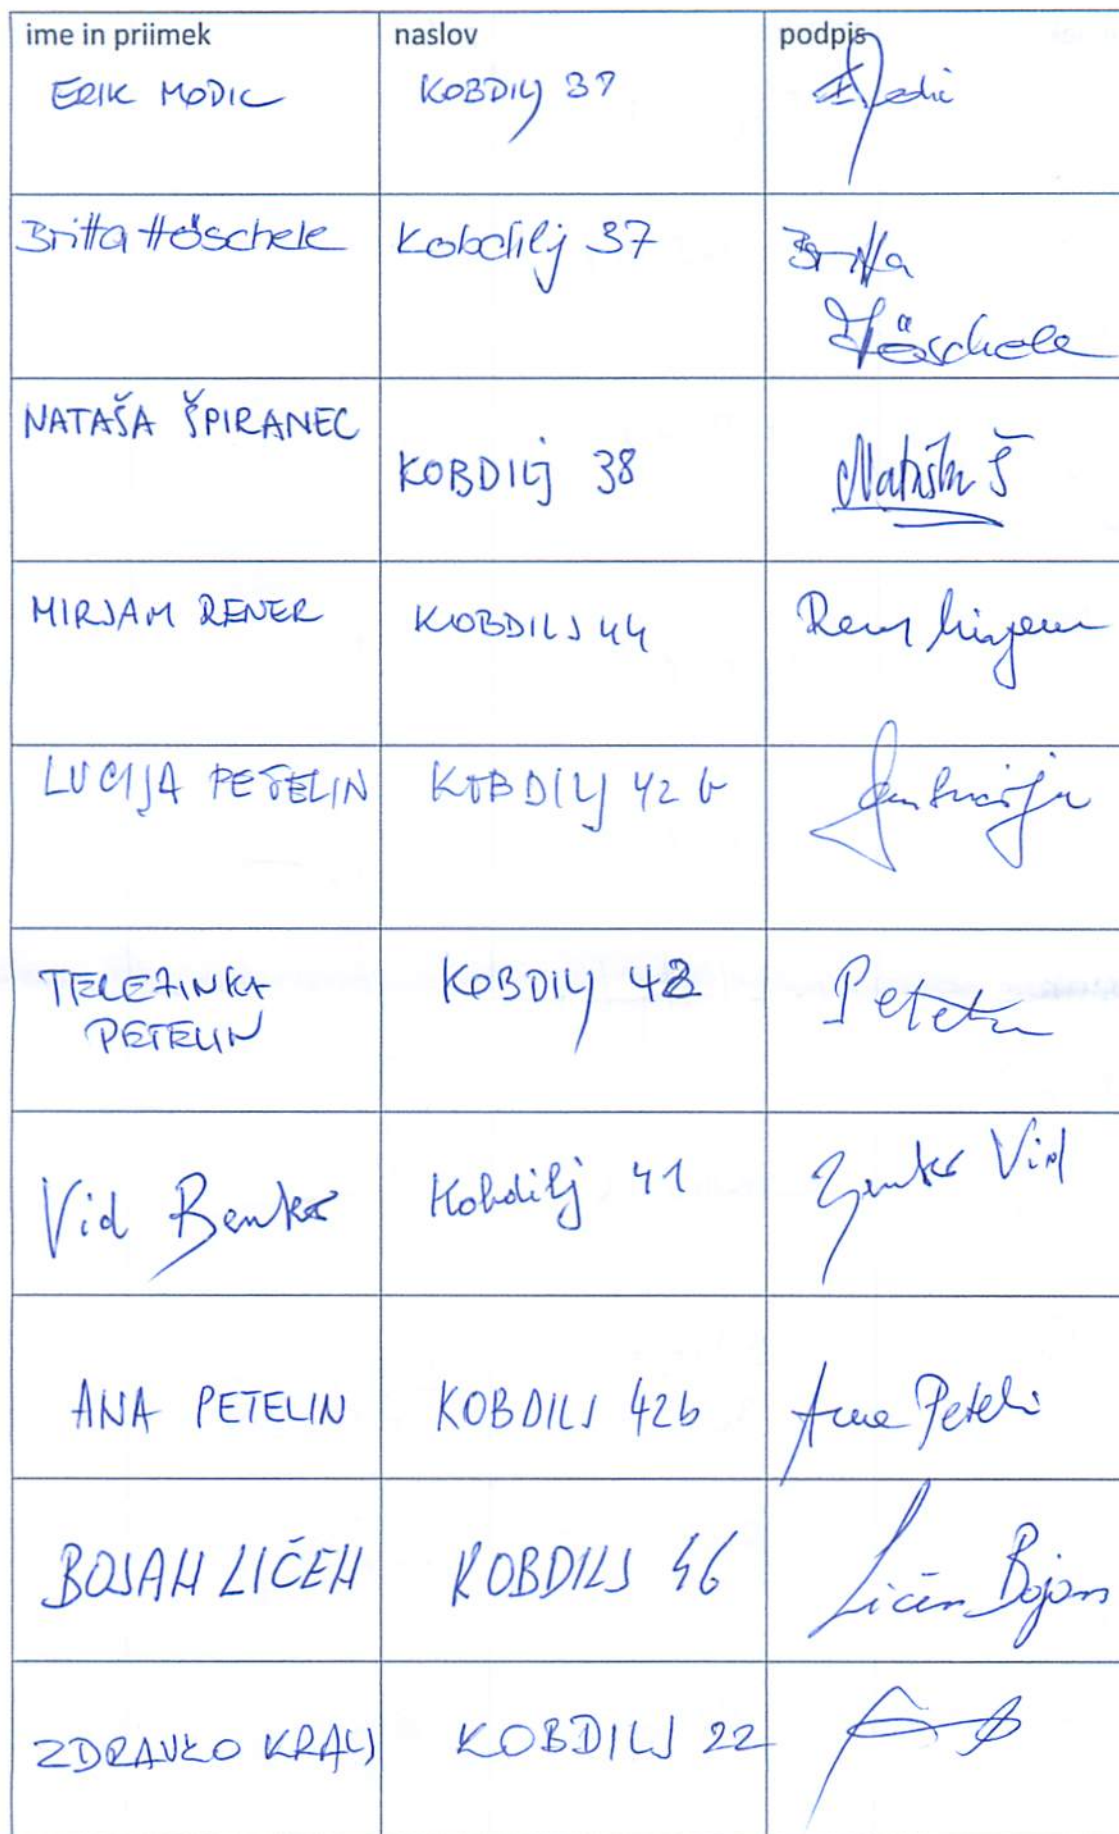 ime in priimek naslov podpis
ERIK MODIC KOBDILJ 37
Britta Höschele Kobdilj 37 Britta
Höschele
NATAŠA ŠPIRANEC
KOBDILJ 38 Nataša Š
MIRJAM RENER KOBDILJ 44 Rener Mirjam
LUCIJA PETELIN KOBDILJ 42 b
TEREZINKA KOBDILJ 42 Petelin
PETELIN
Vid Benko Kobdilj 41 Vid
ANA PETELIN KOBDILJ 42b Ana Petelin
BOJAN LIČEN KOBDILJ 46 Ličen Bojan
ZDRAVKO KRALJ KOBDILJ 22